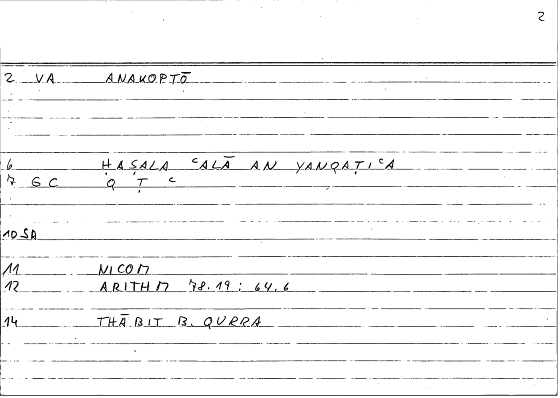 2
2 VA ANAKOPTŌ
6 ḤAṢALA ʿALĀ AN YANQAṬIʿA
7 GC Q Ṭ ʿ
10 SA
11 NICOM
12 ARITHM 78.19 : 64.6
14 THĀBIT B. QURRA